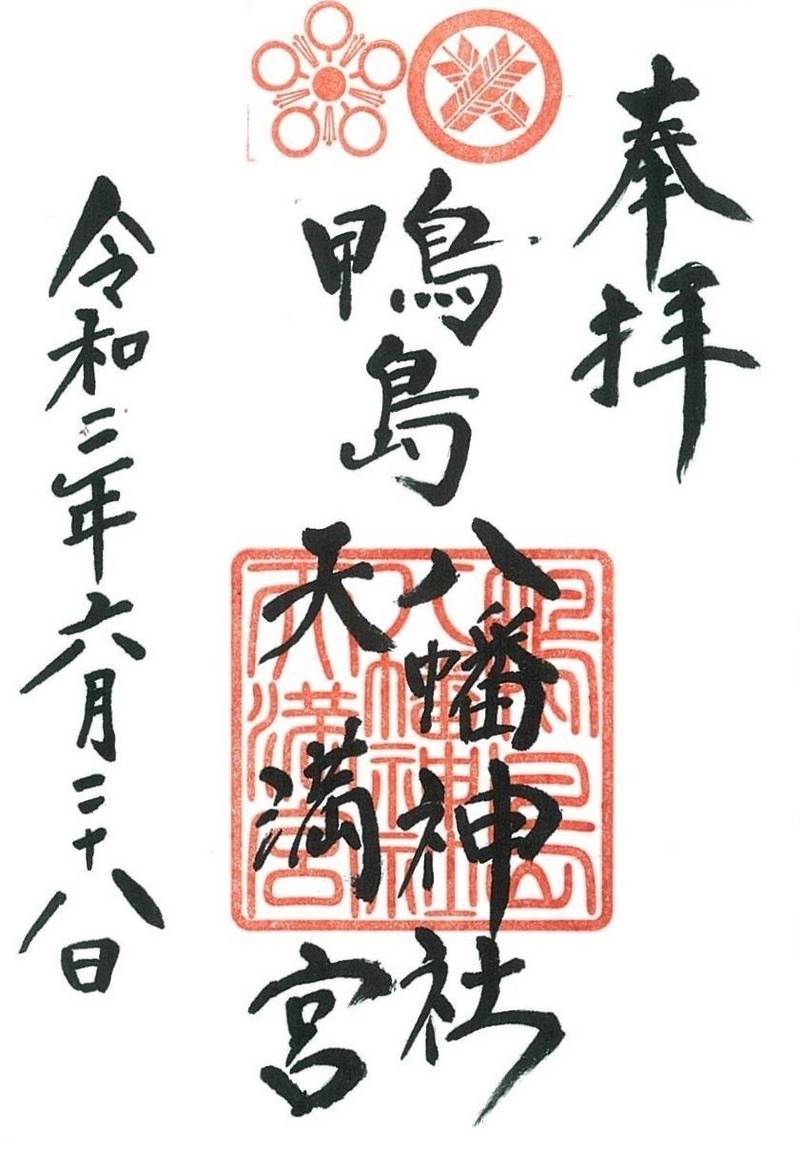 奉拝
鴨島
八幡神社
天満宮
令和三年六月二十八日
鴨島
八幡神社
天満宮